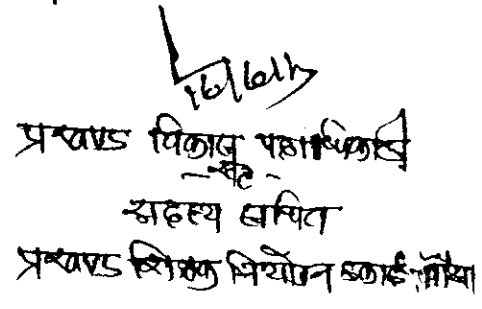 प्रखण्ड विकास पदाधिकारी
-सह-
सदस्य सचिव
प्रखण्ड शिक्षक नियोजन इकाई